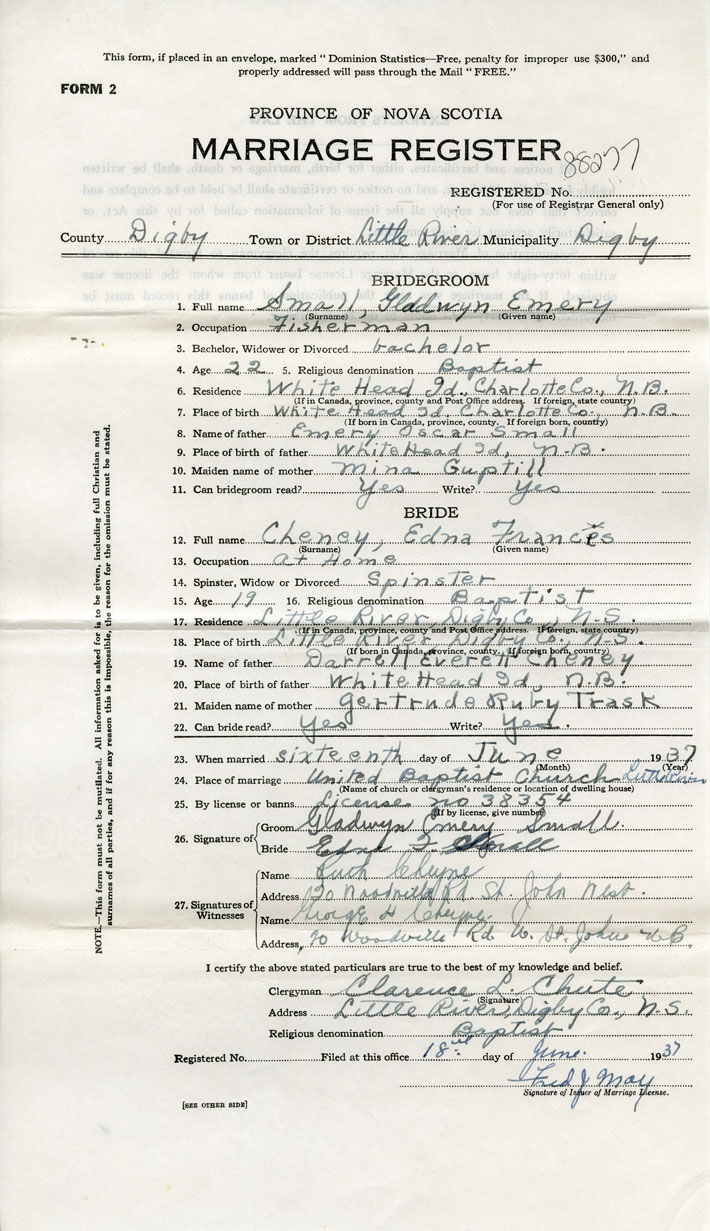 This form, if placed in an envelope, marked "Dominion Statistics—Free, penalty for improper use $300," and
properly addressed will pass through the Mail "FREE."
FORM 2
PROVINCE OF NOVA SCOTIA
MARRIAGE REGISTER
88277
REGISTERED No.
(For use of Registrar General only)
County Digby Town or District Little River Municipality Digby
BRIDEGROOM
1. Full name Small, Gladwyn Emery
(Surname) (Given name)
2. Occupation Fisherman
3. Bachelor, Widower or Divorced bachelor
4. Age 22 5. Religious denomination Baptist
6. Residence White Head Id., Charlotte Co., N.B.
(If in Canada, province, county and Post Office address. If foreign, state country)
7. Place of birth White Head Id, Charlotte Co., N.B.
(If born in Canada, province, county. If foreign born, country)
8. Name of father Emery Oscar Small
9. Place of birth of father White Head Id, N.B.
10. Maiden name of mother Mina Guptill
11. Can bridegroom read? Yes Write? Yes
BRIDE
12. Full name Cheney, Edna Frances
(Surname) (Given name)
13. Occupation at Home
14. Spinster, Widow or Divorced Spinster
15. Age 19 16. Religious denomination Baptist
17. Residence Little River Digby Co., N.S.
(If in Canada, province, county and Post Office address. If foreign, state country)
18. Place of birth Little River, Digby Co., N.S.
(If born in Canada, province, county. If foreign born, country)
19. Name of father Darrell Everett Cheney
20. Place of birth of father White Head Id, N.B.
21. Maiden name of mother Gertrude Ruby Trask
22. Can bride read? Yes Write? Yes.
23. When married sixteenth day of June 1937
(Month) (Year)
24. Place of marriage United Baptist Church Little River
(Name of church or clergyman's residence or location of dwelling house)
25. By license or banns License no 38354
(If by license, give number)
26. Signature of Groom Gladwyn Emery Small.
Bride Edna F. Small
27. Signatures of Witnesses
Name Ruth Cheyne
Address 20 Woodville Rd. St. John West.
Name George H Cheyne
Address, 20 Woodville Rd. W. St. John N B
I certify the above stated particulars are true to the best of my knowledge and belief.
Clergyman Clarence L. Chute
(Signature)
Address Little River, Digby Co., N.S.
Religious denomination Baptist
Registered No. Filed at this office 18 day of June. 1937
Fred J May
Signature of Issuer of Marriage License.
[SEE OTHER SIDE]
NOTE.—This form must not be mutilated. All information asked for is to be given, including full Christian and
surnames of all parties, and if for any reason this is impossible, the reason for the omission must be stated.